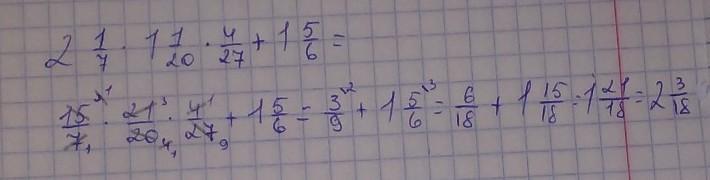 2 1/7 · 1 1/20 · 4/27 + 1 5/6 =
15/7 · 21/20 · 4/27 + 1 5/6 = 3/9 + 1 5/6 = 6/18 + 1 15/18 = 1 21/18 = 2 3/18